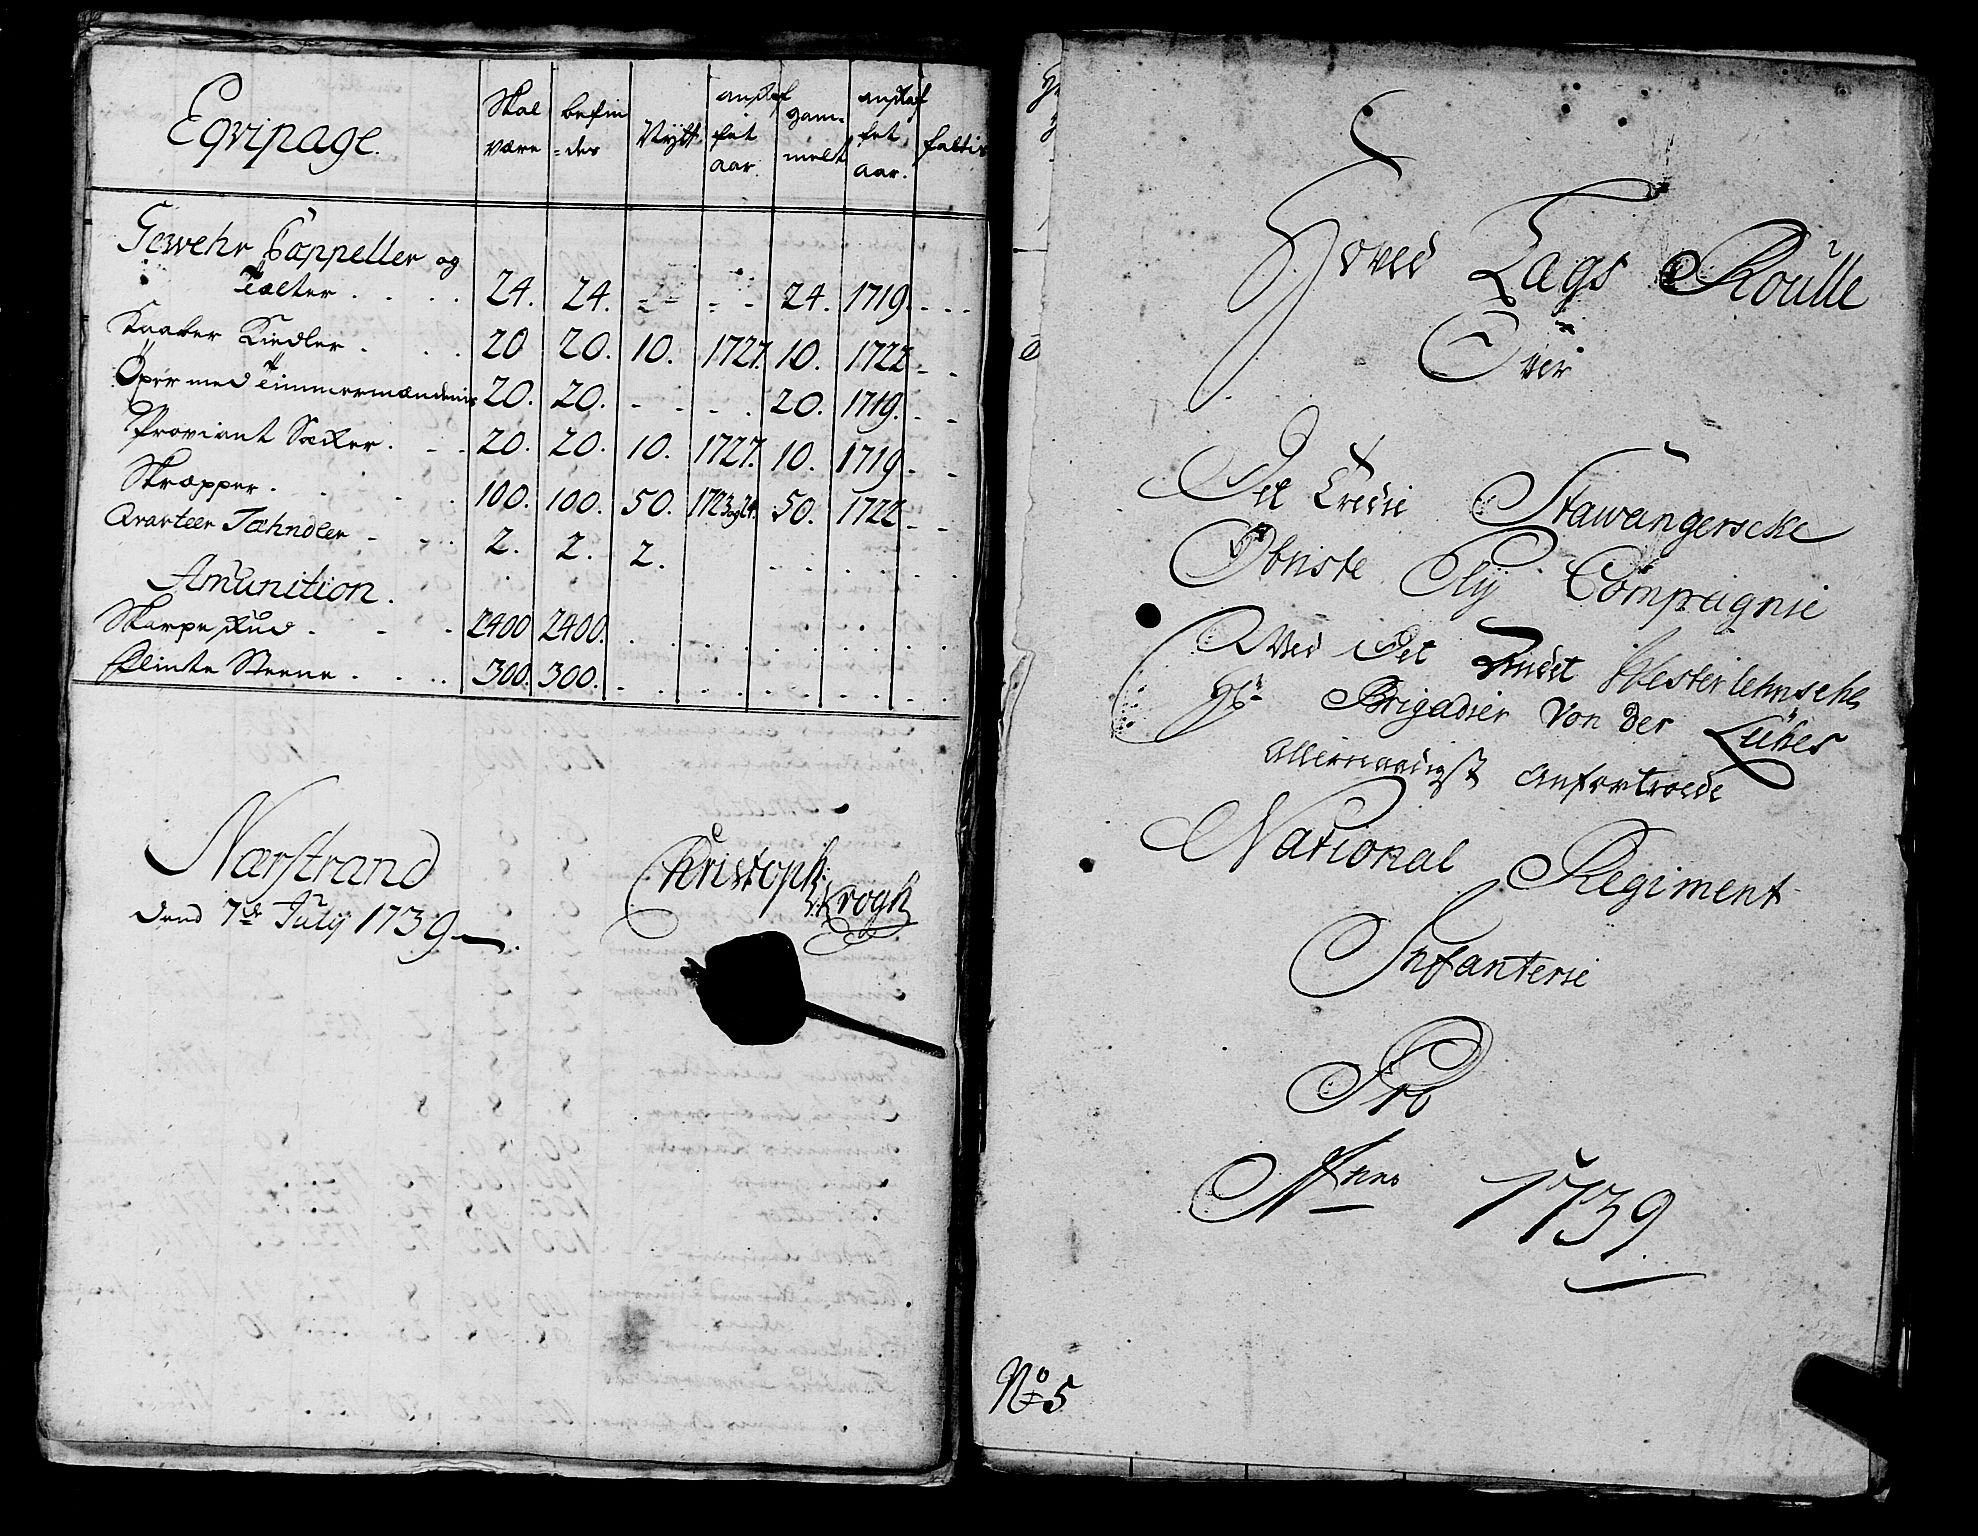 Eqvipage.
Skal være | befin=des | Nÿtt | anskaffet aar. | gammelt | anskaffet aar. | fattis
Gewehr Cappeller og
Tælter . . . . 24. 24. 24. 1719.
Kaaber Kiedler . . . 20 20. 10. 1727. 10. 1722
Öxer med Timmermændenis 20. 20. 20. 1719.
Proviant Sæker . . . 20. 20. 10. 1727. 10. 1719.
Skræpper . . . . 100. 100. 50. 1723 og 24. 50. 1722
Qvarteer Fæhndler 2. 2. 2.
Amunition.
Skarpe skud . . . 2400 2400.
flinte Steene . . . . 300. 300.
Nærstrand
dend 7de Julÿ 1739
Christoph
Krogh
Hoved Lægs Roulle
Over
Det Tredie Stawangerscke
Obriste Compragnie
Wed Det Andet Westerlehnsche
Hr Brigadier Von der Lühes
Allernaadigst Anfortroede
National Regiment
Infanterie
Pro
Anno 1739.
No 5